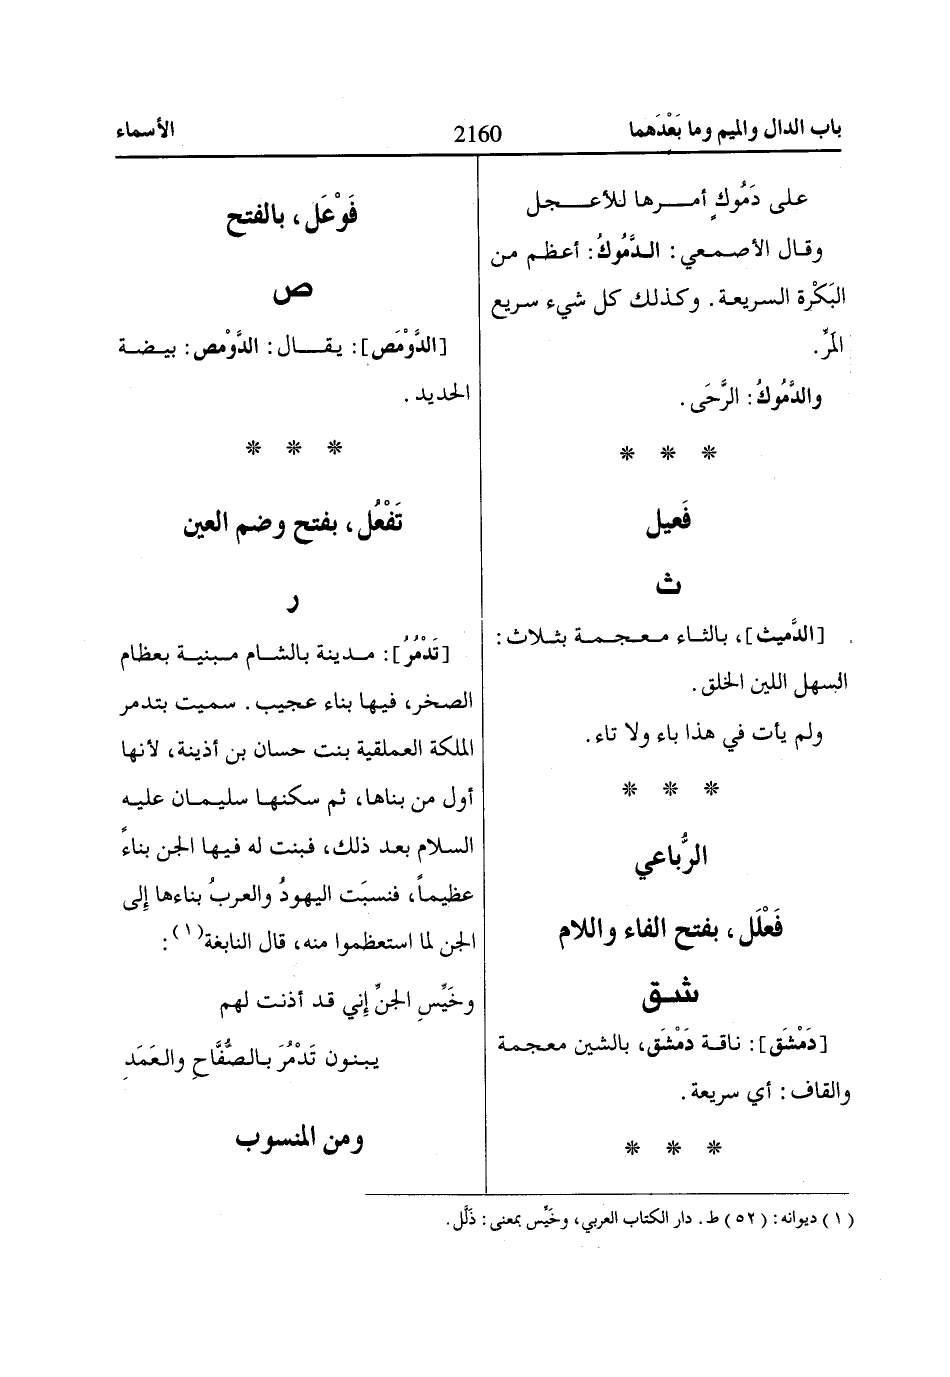 باب الدال والميم وما بَعْدَهما
2160
الأسماء
على دَمُوكٍ أمـرها للأعـجل
وقال الأصمعي: الدَّمُوكُ: أعظم من
البَكْرة السريعة. وكذلك كل شيء سريع
المَرِّ.
والدَّمُوكُ: الرَّحَى.
* * *
فَعيل
ث
[الدَّميث]، بالثاء معجمة بثلاث:
السهل اللين الخلق.
ولم يأت في هذا باء ولا تاء.
* * *
الرُّباعي
فَعْلَل، بفتح الفاء واللام
شق
[دَمْشَق]: ناقة دَمْشَق، بالشين معجمة
والقاف: أي سريعة.
* * *
فَوْعَل، بالفتح
ص
[الدَّوْمَص]: يقال: الدَّوْمَص: بيضة
الحديد.
* * *
تَفْعُل، بفتح وضم العين
ر
[تَدْمُرُ]: مدينة بالشام مبنية بعظام
الصخر، فيها بناء عجيب. سميت بتدمر
الملكة العملقية بنت حسان بن أذينة، لأنها
أول من بناها، ثم سكنها سليمان عليه
السلام بعد ذلك، فبنت له فيها الجن بناءً
عظيماً، فنسبَت اليهودُ والعربُ بناءها إلى
الجن لما استعظموا منه، قال النابغة(١):
وخَيِّسِ الجنِّ إني قد أذنت لهم
يبنون تَدْمُرَ بالصُّفَّاحِ والعَمَدِ
ومن المنسوب
(١) ديوانه: (٥٢) ط. دار الكتاب العربي، وخَيِّس بمعنى: ذَلِّل.